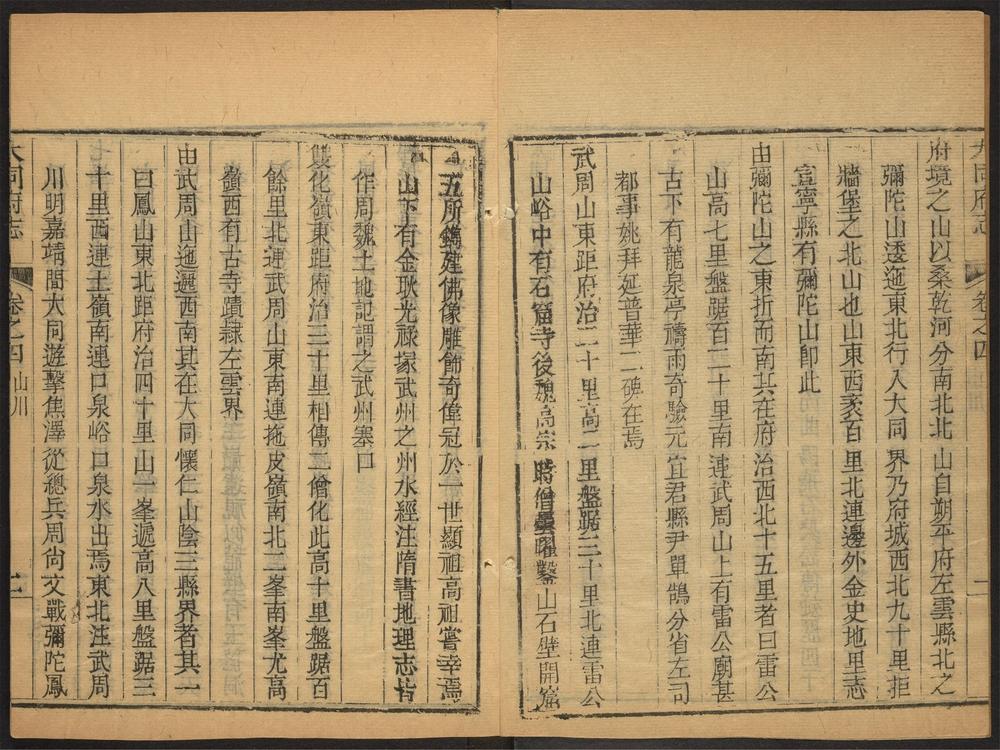 大同府志
卷之四
二
府境之山以桑乾河分南北北山自朔平府左雲縣北之
彌陀山透迤東北行入大同界乃府城西北九十里拒
牆堡之北山也山東西袤百里北連邊外金史地里志
宣寧縣有彌陀山卽此
由彌陀山之東折而南其在府治西北十五里者曰雷公
山高七里盤踞百二十里南連武周山上有雷公廟甚
古下有龍泉亭禱雨奇驗元宜君縣尹單鶻分省左司
都事姚拜延普華二碑在焉
武周山東距府治二十里高二里盤踞三十里北連雷公
山峪中有石窟寺後魏高宗時僧曇曜鑿山石壁開窟
五所鐫建佛像雕飾奇偉冠於一世顯祖高祖嘗幸焉
山下有金耿光祿冢武州之州水經注隋書地理志皆
作周魏土地記謂之武州塞口
雙化嶺東距府治三十里相傳二僧化此高十里盤踞百
餘里北連武周山東南連拖皮嶺南北二峯南峯尤高
嶺西有古寺蹟隸左雲界
由武周山迤邐西南其在大同懷仁山陰三縣界者其一
曰鳳山東北距府治四十里山一峯遞高八里盤踞三
十里西連土嶺南連口泉峪口泉水出焉東北注武周
川明嘉靖間大同遊擊焦澤從總兵周尚文戰彌陀鳳
大同府志
卷之四 山川